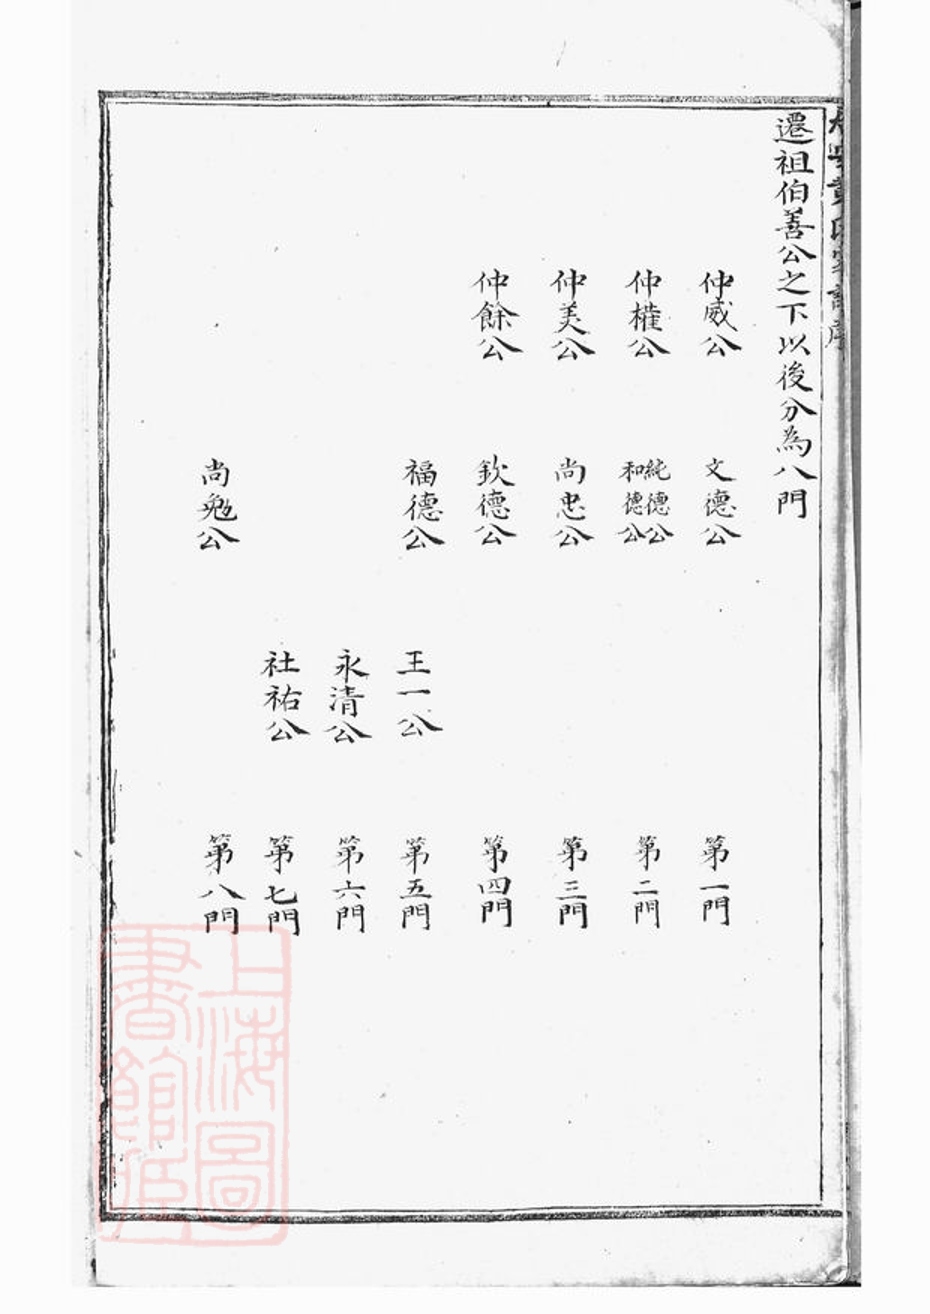 遷祖伯善公之下以後分為八門
仲威公 文德公 第一門
仲權公 純德公 和德公 第二門
仲美公 尚忠公 第三門
仲餘公 欽德公 第四門
福德公 王一公 第五門
永清公 第六門
社祐公 第七門
尚勉公 第八門
上海圖
書館藏